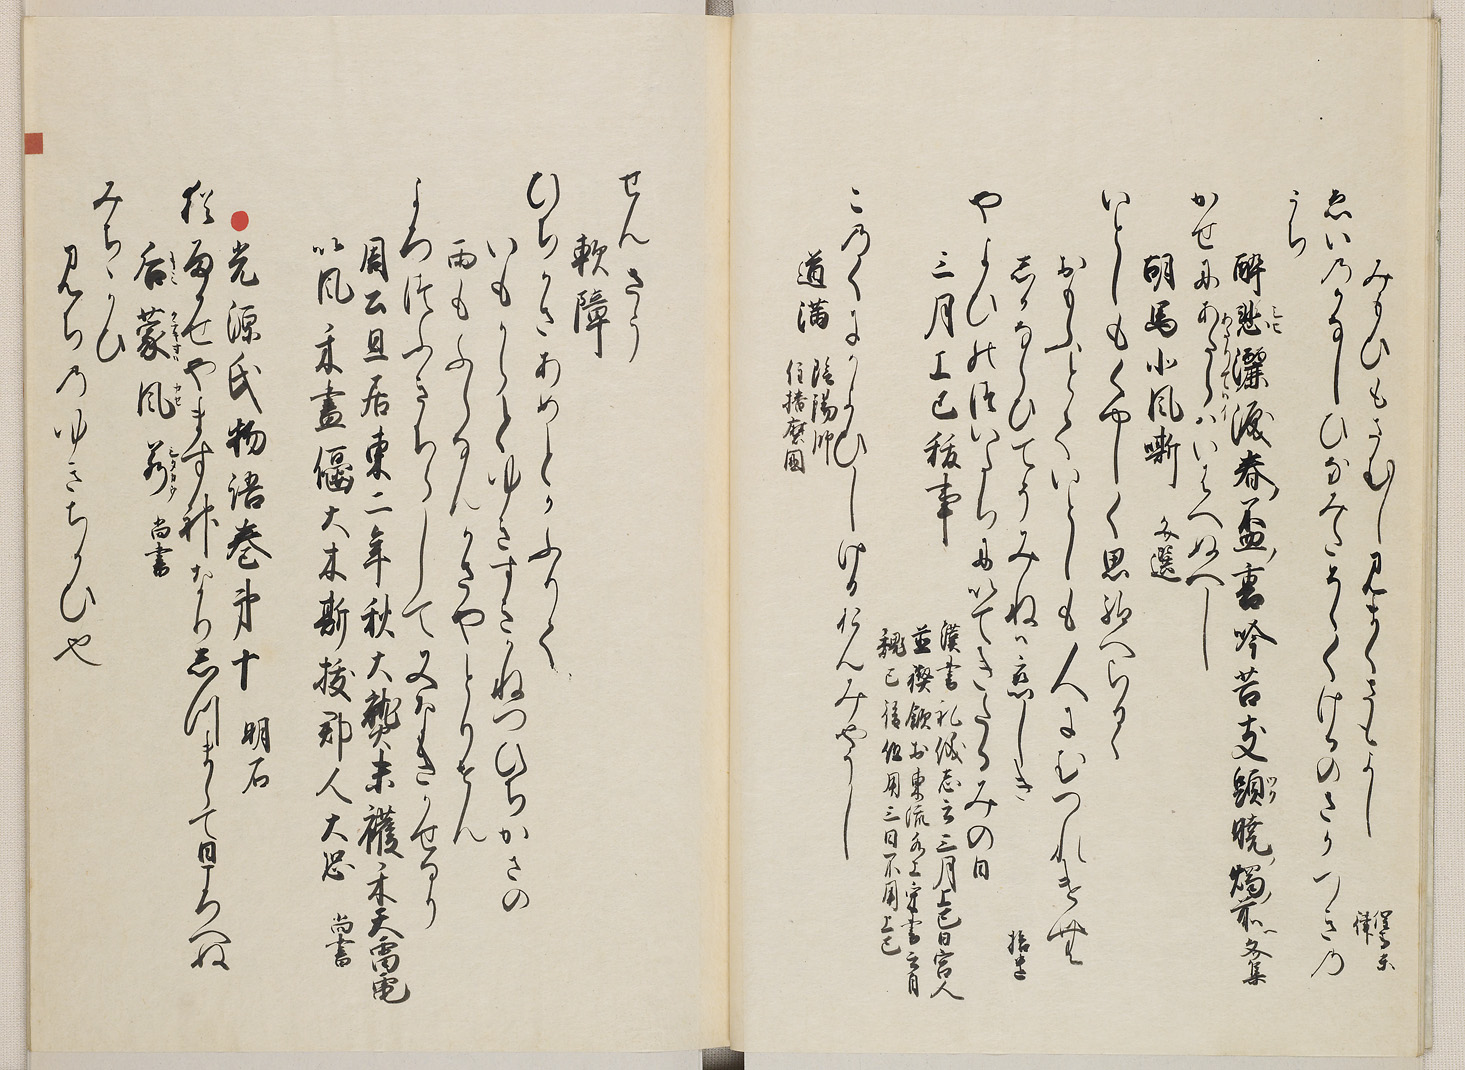 みもひもさむしみまくさもよし 催馬楽 律
ゑいのかなしひなみたそゝくはるのさかつきの
うち
酔悲灑涙春盃裏吟苦支頤暁燭前 文集
かせにあたりてはいはへぬへし
胡馬北風嘶 文選
いとしもくやしく思給へらるゝ
おもふとていとしも人にむつれけむ
しかならひてそみねは恋しき 拾遺
やよひのついたちにいてきたるみの日
三月上巳祓事
漢書礼儀志云三月上巳日宮人
並禊飲於東流水上宋書云自
魏已後但用三日不用上巳
このくにゝかよひしけるおんみやうし
道満 陰陽師
住播磨国
せんさう
軟障
ひちかさあめとかふりて
いもかかとゆきすきかねつひちかさの
雨もふらなんかさやとりせん
よろつふきちらして又なきかせなり
周公旦居東二年秋大熟未穫禾天雷電
以風禾盡偃大木斯抜邦人大恐 尚書
光源氏物語巻第十 明石
猶雨かせやます神なりしつまらて日ころへぬ
曰蒙風若 尚書
みちかひ
みちのゆきちかひや